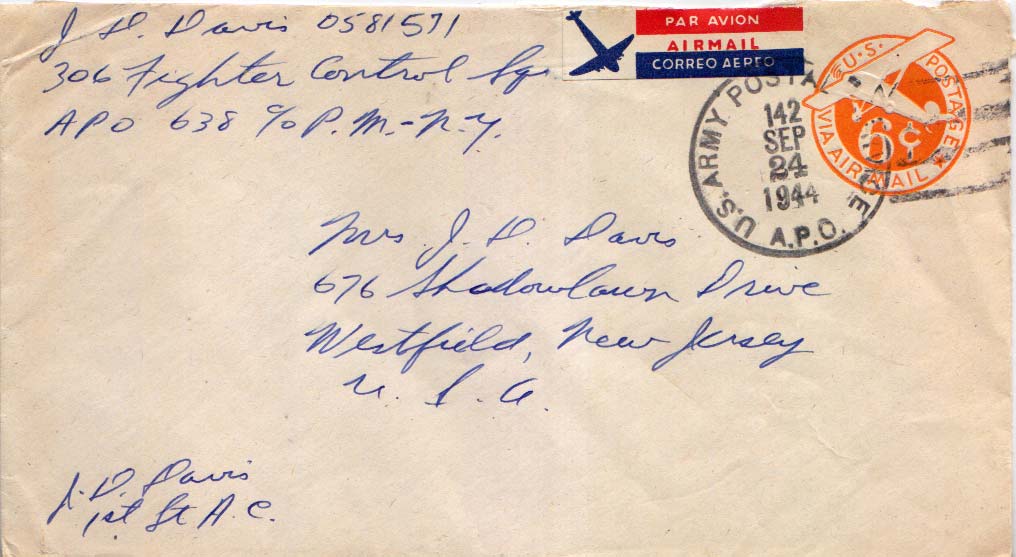 J. D. Davis 0581571
306 Fighter Control Sq.
APO 638 c/o P.M.-N.Y.
PAR AVION
AIRMAIL
CORREO AEREO
U.S. ARMY POSTAL SERVICE
142
SEP
24
1944
A.P.O.
U.S. POSTAGE
6¢
VIA AIR MAIL
Mrs J. D. Davis
676 Shadowlawn Drive
Westfield, New Jersey
U. S. A.
J. D. Davis
1st Lt A.C.